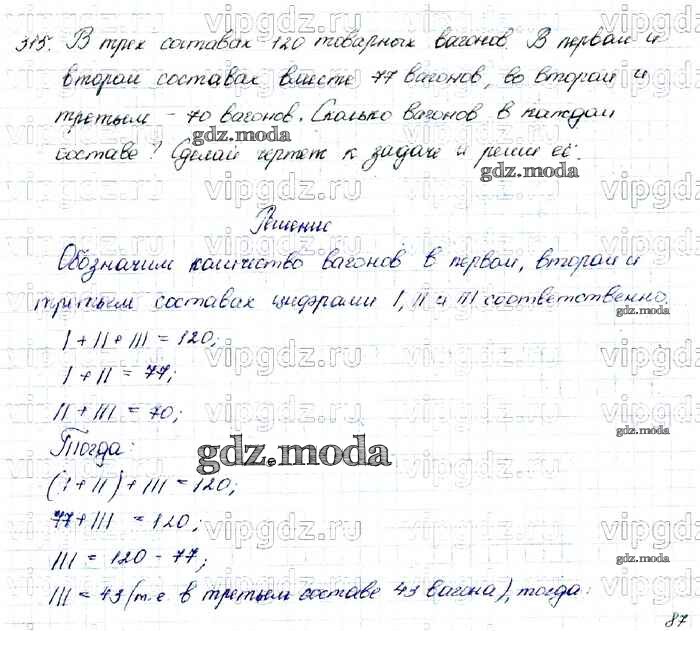 315. В трех составах 120 товарных вагонов. В первом и
втором составах вместе 77 вагонов, во втором и
третьем - 70 вагонов. Сколько вагонов в каждом
составе? Сделай чертеж к задаче и реши её.
Решение
Обозначим количество вагонов в первом, втором и
третьем составах цифрами I, II и III соответственно.
I + II + III = 120;
I + II = 77;
II + III = 70;
Тогда:
(I + II) + III = 120;
77 + III = 120;
III = 120 - 77;
III = 43 (т.е. в третьем составе 43 вагона), тогда:
87
gdz.moda
gdz.moda
gdz.moda
gdz.moda
gdz.moda
gdz.moda
vipgdz.ru